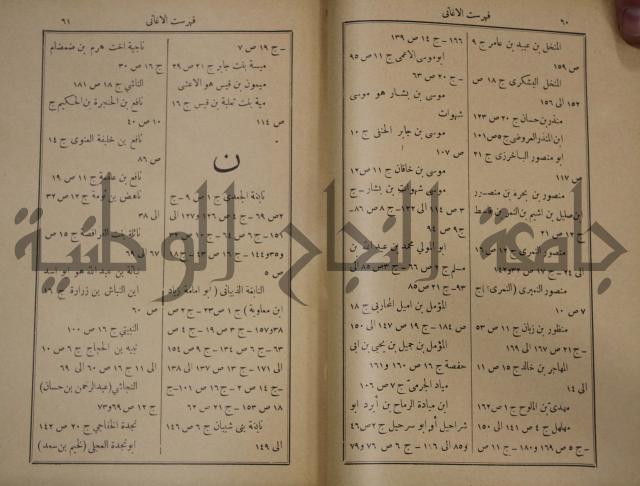 فهرست الاغانى
٦٠
المنخل بن عبيد بن عامر ج ٩
ص ١٥٩
المنخل اليشكرى ج ١٨ ص
١٥٢ الى ١٥٦
منذر بن حسان ج ٢٠ ص ١٢٣
ابن المنذر العروضى ج ٥ ص ١٠١
ابو منصور الباخرزى ج ٢١
ص ١١٧
منصور بن بجرة بن منصور
بن صليل بن اشيم بن
ج ١٢ ص ٢١
منصور النمرى ج ١٢ ص ١٦
الى ٢٤ - ج ١٧ ص
منصور النميرى (النمرى) ج
٧ ص ١٠
منظور بن زبان ج ١١ ص ٥٣
- ج ٢١ ص ١٦٧ الى ١٦٩
المهاجر بن خالد ج ١٥ ص ١١
الى ١٤
مهدى بن الملوح ج ١ ص ١٦٢
مهلهل ج ٤ ص ١٤١ الى ١٥٠
- ج ٥ ص ١٦٩ و ١٨٠ - ج ١١ ص
١٦٦ - ج ١٤ ص ١٣٩
ابو موسى الاعمى ج ١١ ص ٩٥
- ج ٢٠ ص ٦٣
موسى بن بشار هو موسى
شهوات
موسى بن جابر الحنفى ج ١٠
ص ١٠٧
موسى بن خاقان ج ١١ ص ١٢
موسى شهوات بن بشار - ج
٣ ص ١١٤ الى ١٢٢ - ج ٨ ص ٨٦ -
ج ٩ ص ٩٤
ابو المولى محمد بن عبد الله بن
مسلم ج ٣ ص ٨٥ الى
٩٣ - ج ٢١ ص ٨٥
المؤمل بن اميل المحاربى ج ١٨
ص ١٨٤ - ج ١٩ ص ١٤٧ الى ١٥٠
المؤمل بن جميل بن يحيى بن ابى
حفصة ج ١٦ ص ١٦٠ و ١٦١
مياد الجرمى ج ٧ ص ١٠٦
ابن ميادة الرماح بن أبرد ابو
شراحيل أو ابو شرحيل ج ٢ ص ٤٦
و ٨٥ الى ١٠٦ - ج ٦ ص ٧٦ و ٧٩
فهرست الاغانى
٦١
- ج ١٩ ص ٧
ميسة بنت جابر ج ٢١ ص ٢٩
ميمون بن قيس هو الاعشى
مية بنت ثعلبة بن قيس ج ١٦
ص ١١٤
ن
نابغة الجعدى ج ١ ص ٩ - ج
٢ ص ٦٩ - ج ٤ ص ١٢٦ و ١٢٧ الى
١٥١ - ج ٦ ص ٦٤ - ج ١٠ ص
و ٣٥ و ١٤٤ - ج ١٦ ص ٤٣ - ج ١٨
ص ٥
النابغة الذبيانى (ابو امامة زياد
ابن معاوية) ج ١ ص ٢٣ - ج ٢ ص
٣٨ و ١٥٧ - ج ٣ ص ١٩ - ج ٤ ص
٦٣ - ج ٦ ص ١٣٤ - ج ٩ ص ١٥٤
الى ١٧١ - ج ١٣ ص ١٣٧ الى ١٣٨
- ج ١٤ ص ٢ - ج ١٦ ص ١٠١ - ج
١٨ ص ١٥٣ - ج ٢١ ص ٦٢
نابغة بنى شيبان ج ٦ ص ١٤٦
الى ١٤٩
ناجية اخت هرم بن ضمضام
ج ١٦ ص ٣٠
الناشى ج ١٨ ص ١٨١
نافع بن الخنجرة بن الحكيم ج
١٠ ص ٤٠
نافع بن خليفة الغنوى ج ١٤
ص ٨٦
نافع بن علقمة ج ١١ ص ١٩
ناهض بن ثومة ج ١٢ ص ٣٢
الى ٣٨
نائلة بنت الفرافصة ج ١٥ ص
٦٧ الى ٦٩
نباتة بن عبد الله هو ابو اسد
ابن النباش بن زرارة ج ١٦
ص ٦٠
النبيتى ج ١٦ ص ١٠٠
نبيه بن الحجاج ج ٦ ص ١٠
الى ١١ ج ١٦ ص ٦٠ الى ٦٩
النجاشى (عبد الرحمن بن حسان)
ج ١٢ ص ٦٩ و ٧٣
نجدة الخفاجى ج ٢٠ ص ١٤٢
ابو نجدة العجلى (لخيم بن سعد)
جامعة النجاح الوطنية